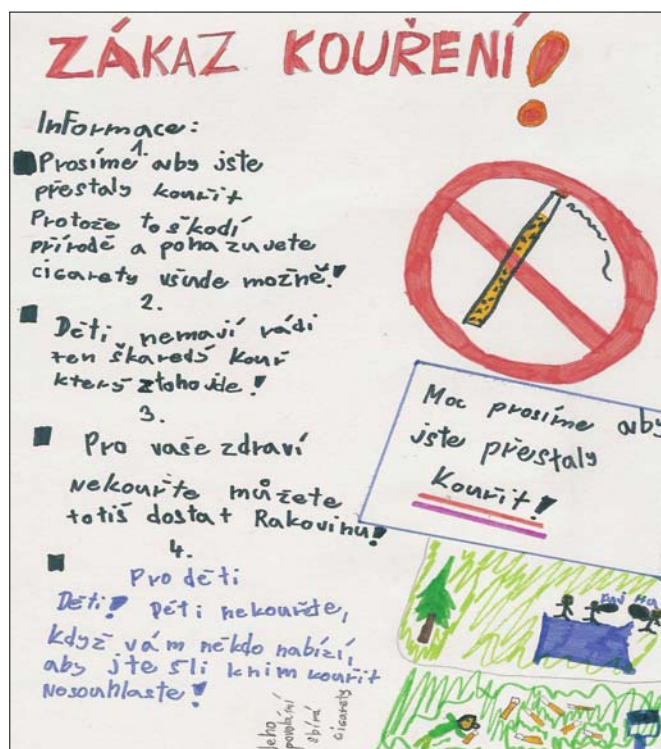 ZÁKAZ KOUŘENÍ!
Informace:
1.
Prosíme aby jste
přestaly kouřit
Protože to škodí
přírodě a pohazujete
cigarety všude možně!
2.
Děti nemají rádi
ten škaredý kouř
který ztohojde!
3.
Pro vaše zdraví
nekouřte můžete
totiš dostat Rakovinu!
4.
Pro děti
Děti! Děti nekouřete,
Když vám někdo nabízí,
aby jte šli knim kouřit
Nosouhlaste!
Moc prosíme aby
jste přestaly
Kouřit!
Jeho
povolání
sbírá
cigarety